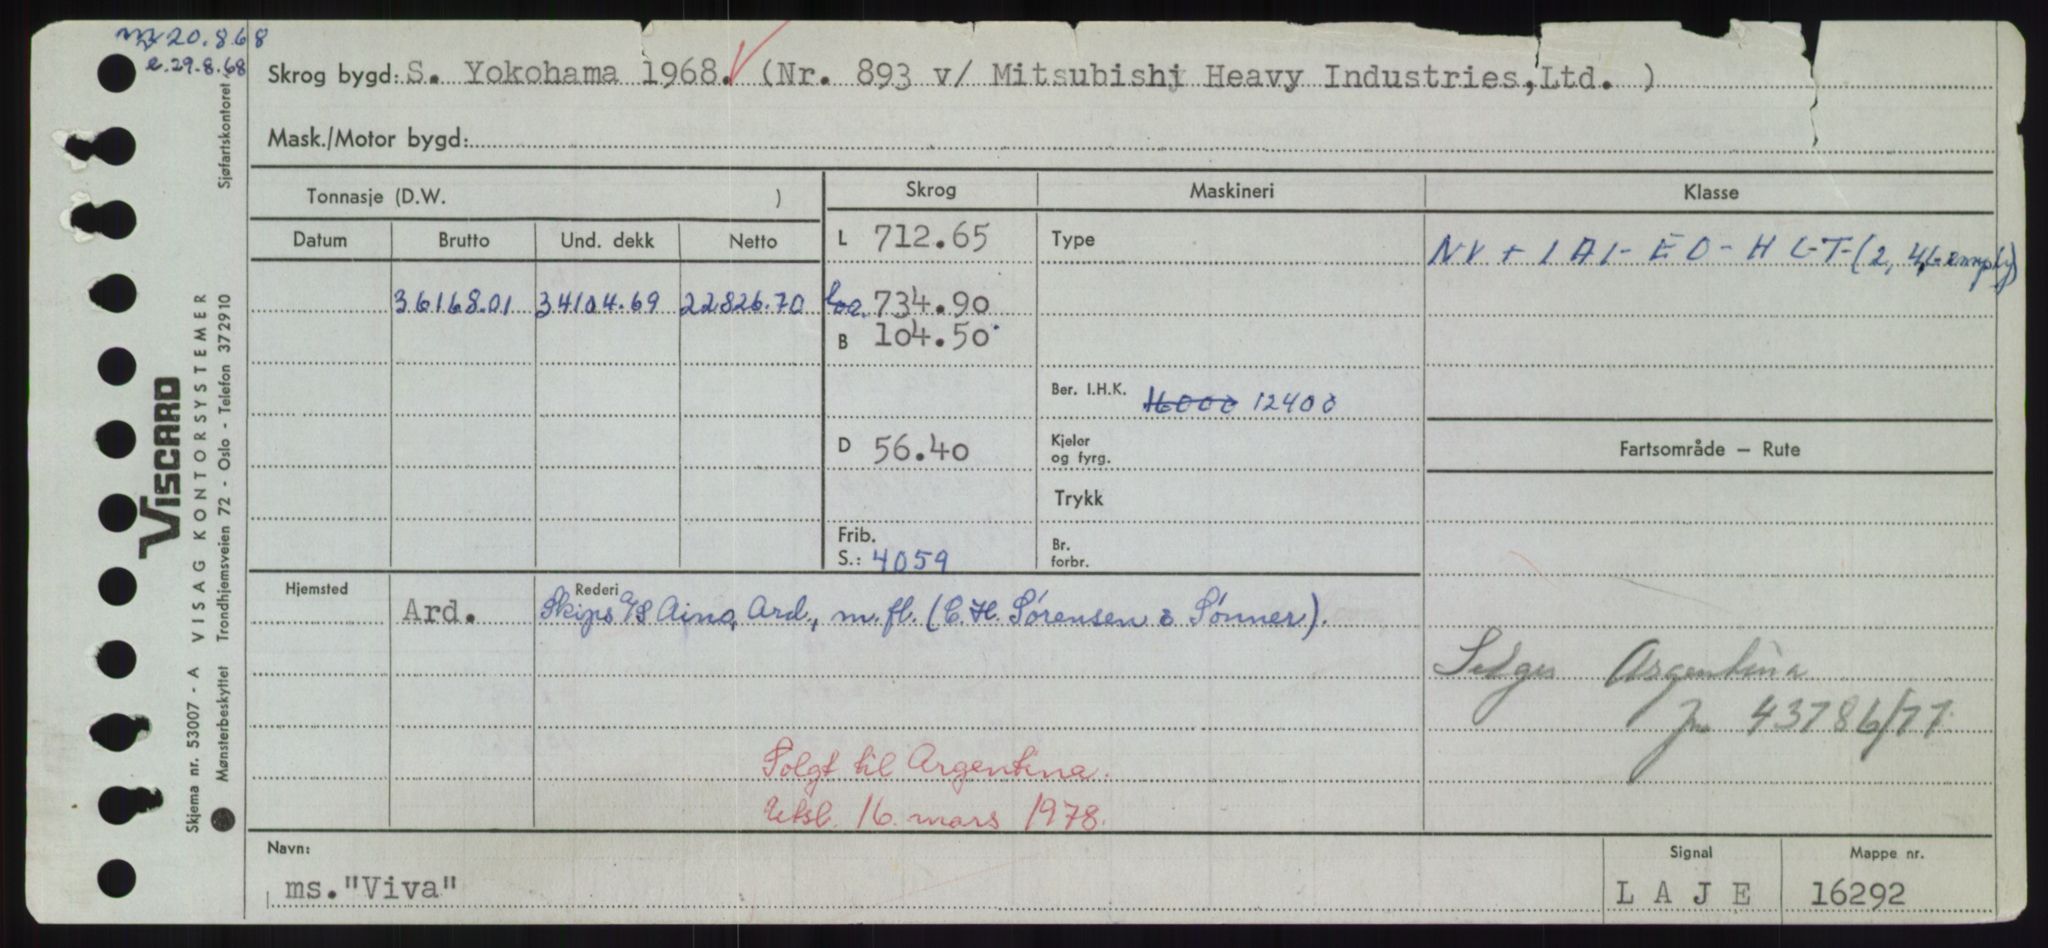 20.8.68
e.29.8.68
Skrog bygd: S. Yokohama 1968. (Nr. 893 v/ Mitsubishi Heavy Industries,Ltd. )
Mask./Motor bygd:
Tonnasje (D.W. )
Skrog Maskineri Klasse
Datum Brutto Und. dekk Netto
L 712.65 Type
NV + 1A1- EO- H L-T-(2, 4,6 empty)
36168.01 34104.69 22826.70 loa. 734.90
B 104.50
Ber. I.H.K. 16000 12400
D 56.40 Kjeler og fyrg.
Fartsområde – Rute
Trykk
Frib. S.: 4059 Br. forbr.
Hjemsted Rederi
Ard. Skips A/S Aino, Ard., m.fl. (C.H. Sørensen & Sønner).
Selges Argentina
Jnr 43786/77
Solgt til Argentina.
Utsl. 16. mars 1978.
Navn: Signal Mappe nr.
ms. "Viva" L A J E 16292
VISCARD
Skjema nr. 53007 - A VISAG KONTORSYSTEMER
Mønsterbeskyttet Trondhjemsveien 72 - Oslo - Telefon 372910 Sjøfartskontoret